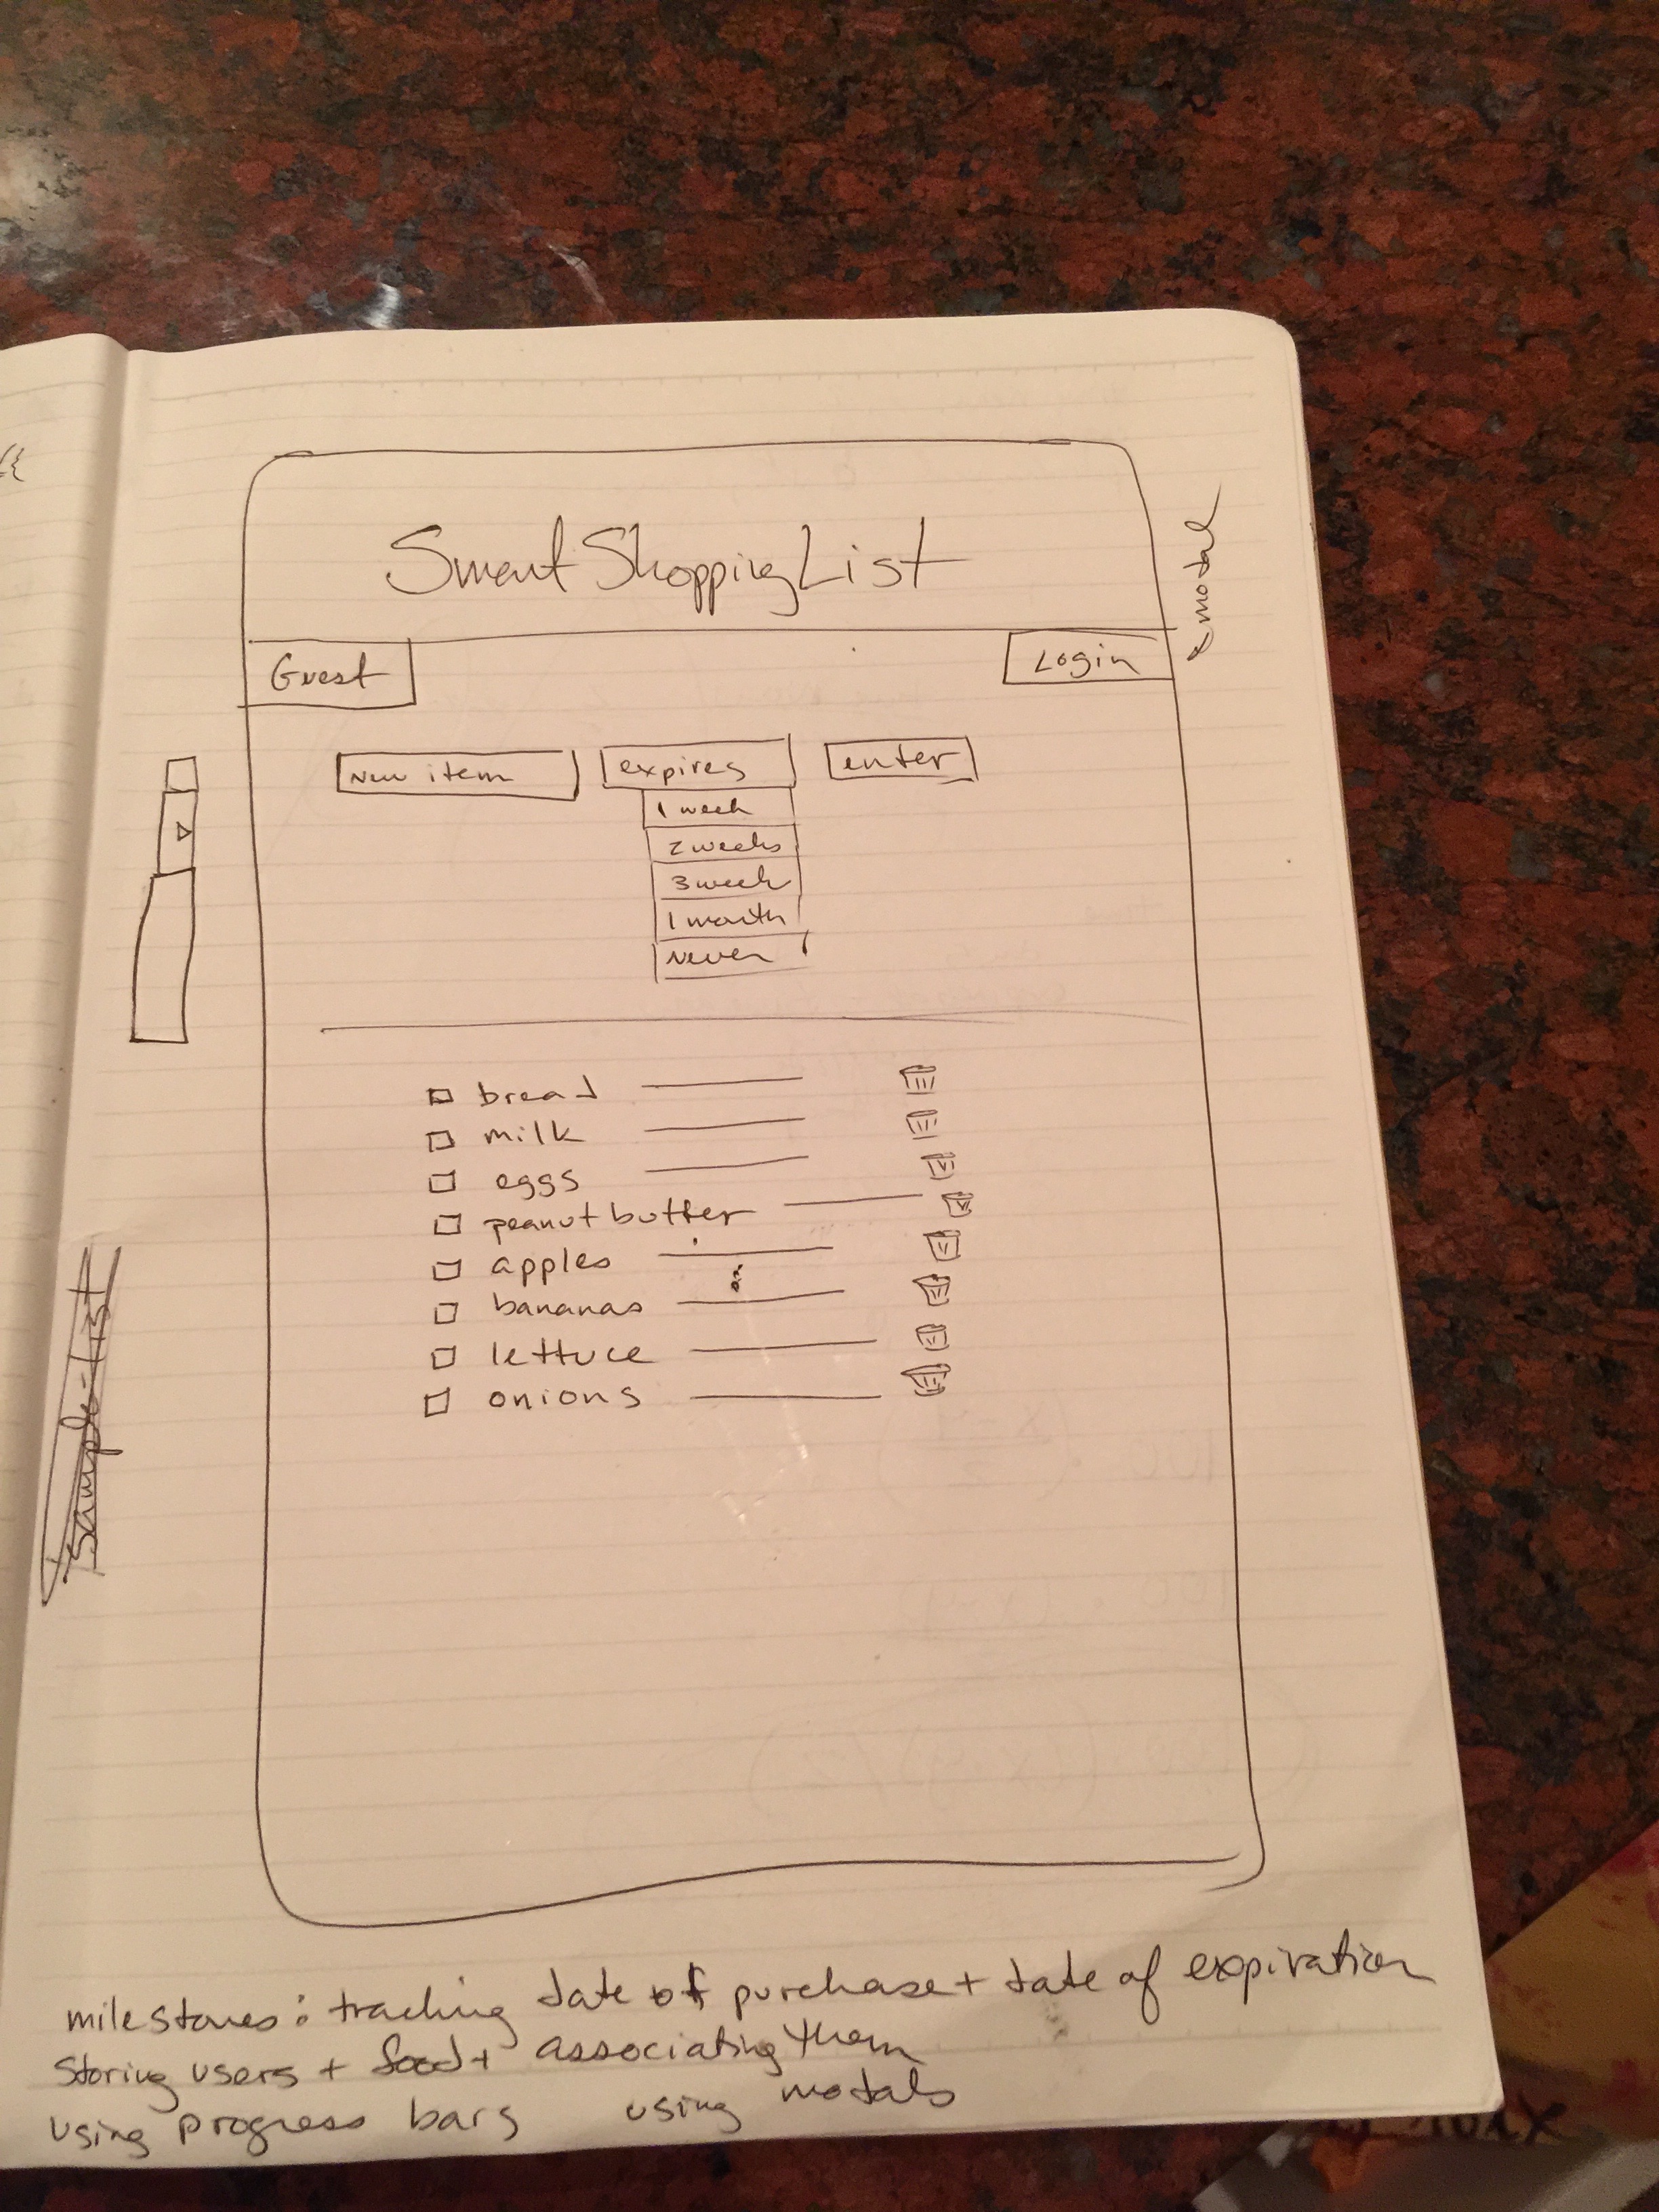 Smart Shopping List
modal
Guest
Login
New item
expires
enter
1 week
2 weeks
3 week
1 month
Never
bread
milk
eggs
peanut butter
apples
bananas
lettuce
onions
Sample-list
milestones: tracking date of purchase + date of expiration
storing users + food + associating them
using progress bars using modals